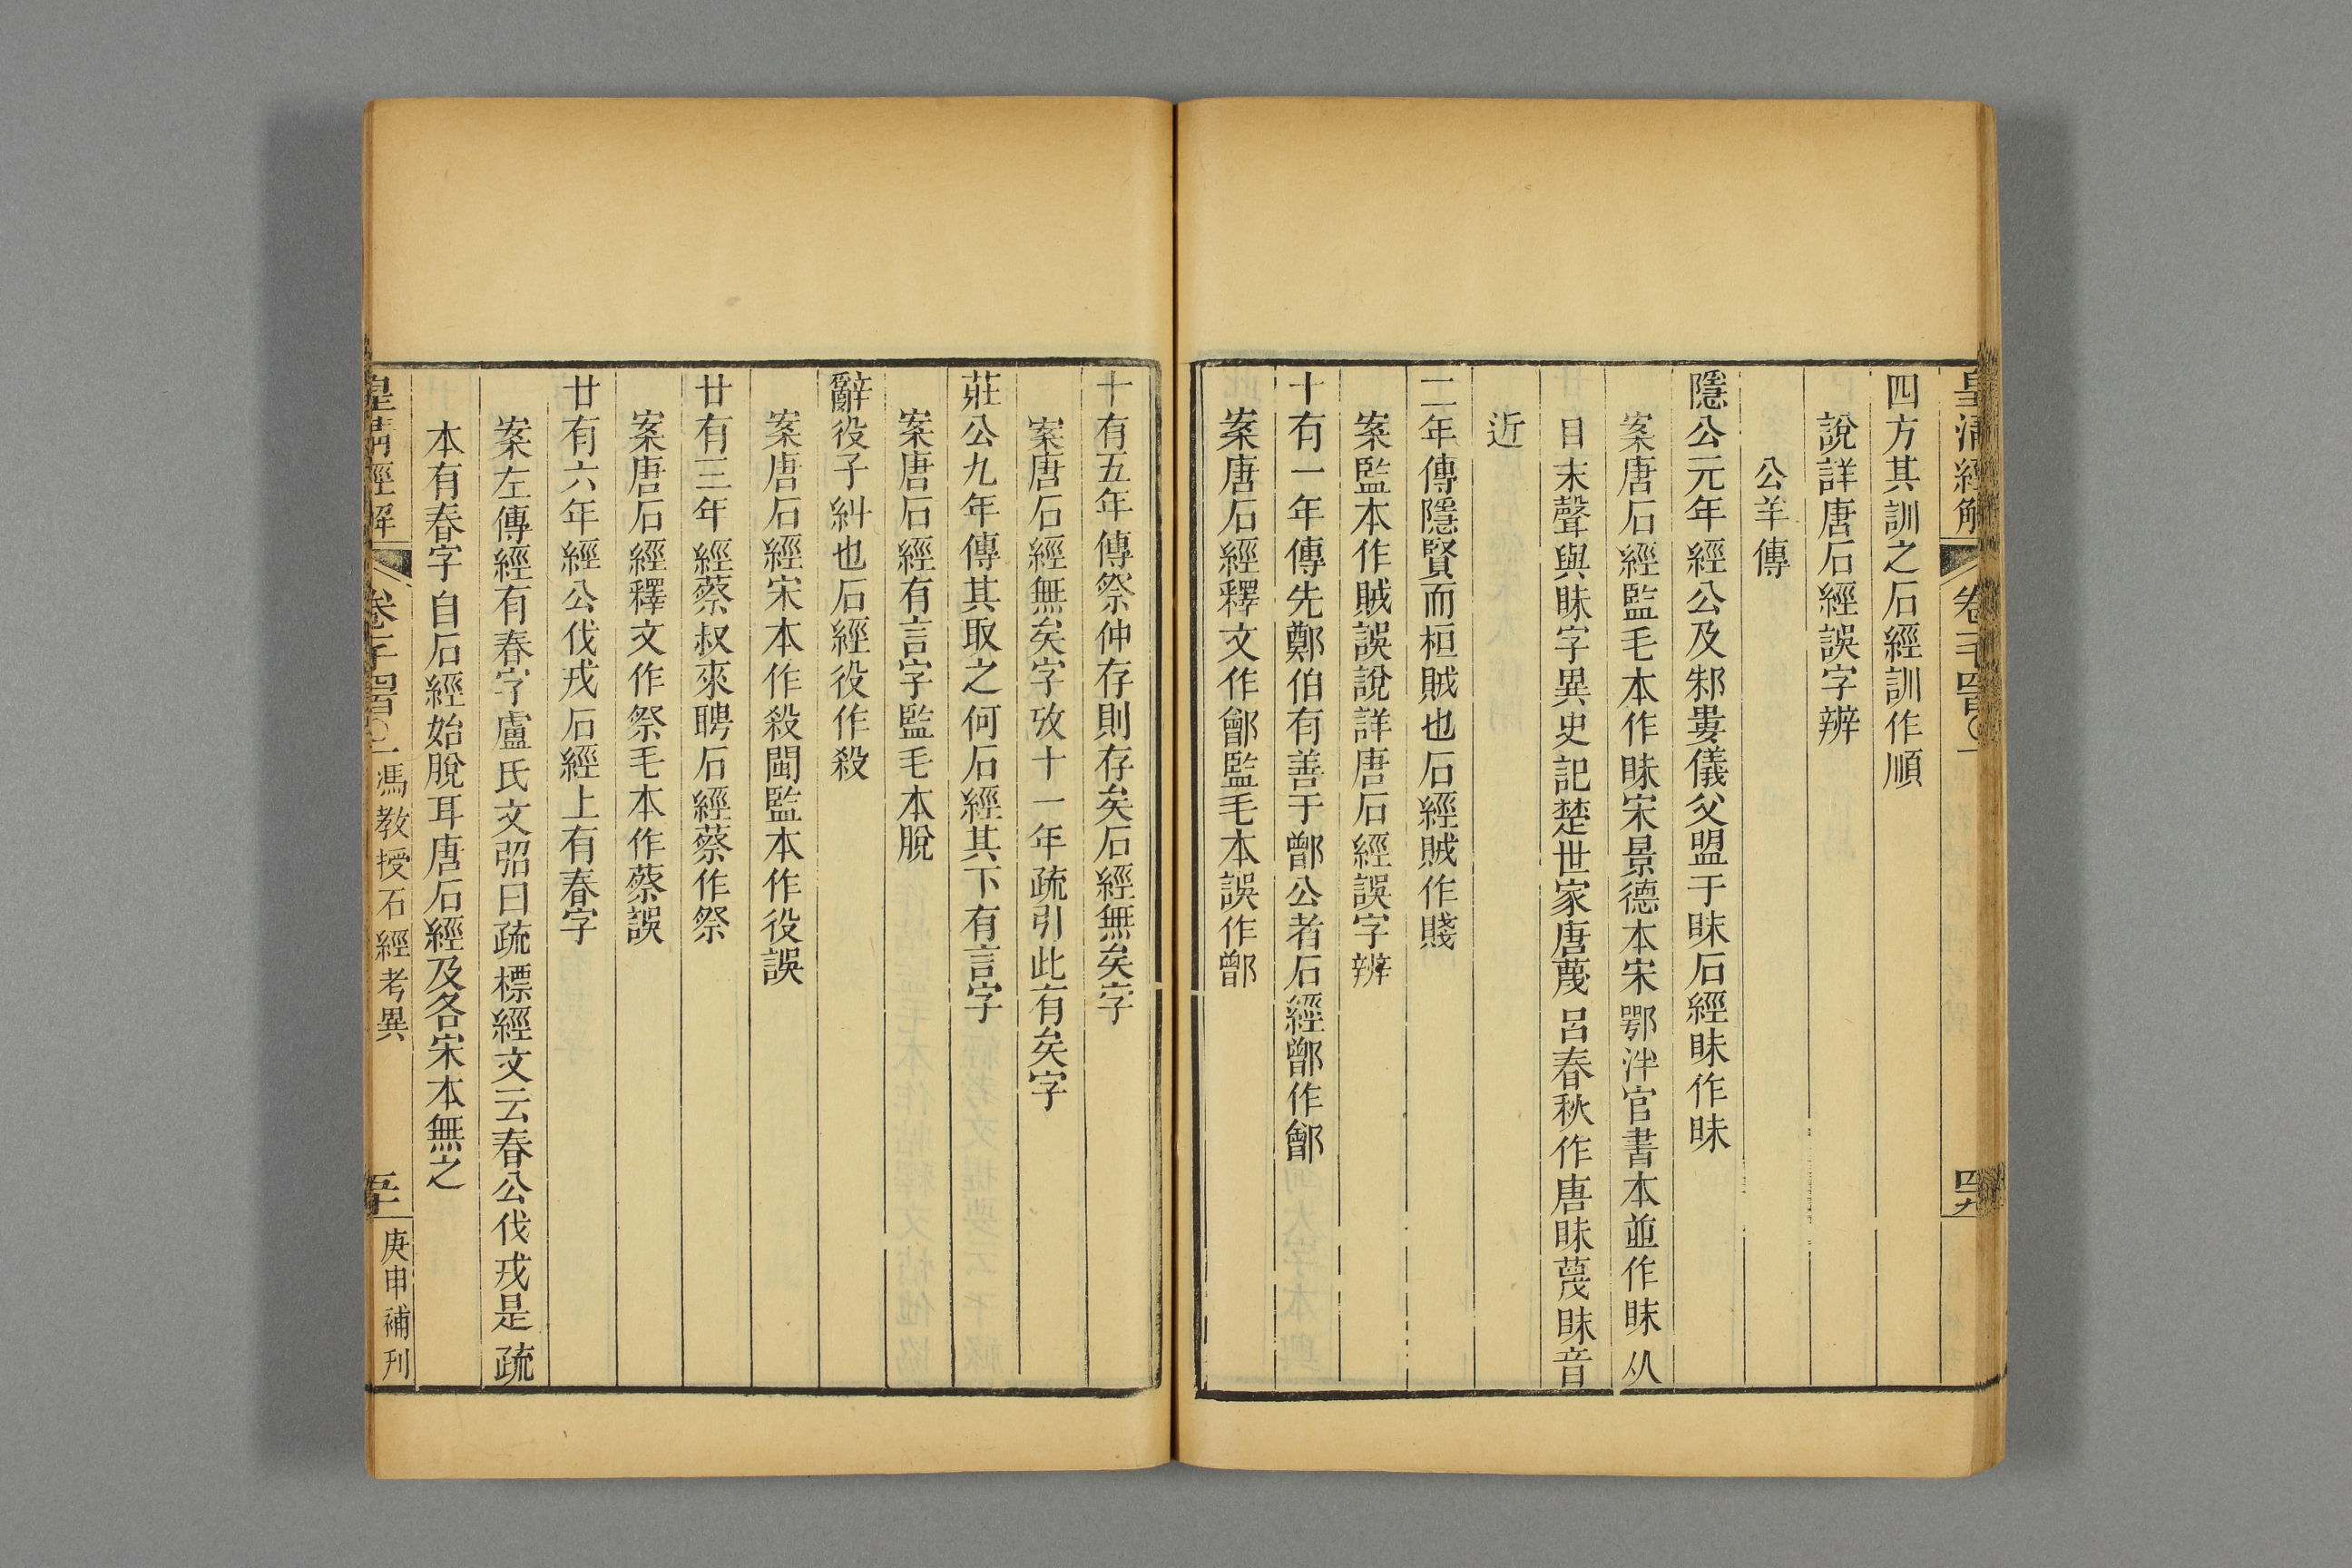 皇清經解
卷千四百一
四九
四方其訓之石經訓作順
說詳唐石經誤字辨
公羊傳
隱公元年經公及邾婁儀父盟于眜石經眜作昧
案唐石經監毛本作昧宋景德本宋鄂泮官書本並作眜从
目末聲與昧字異史記楚世家唐蔑呂春秋作唐眜蔑眜音
近
二年傳隱賢而桓賊也石經賊作賤
案監本作賊誤說詳唐石經誤字辨
十有一年傳先鄭伯有善于鄫公者石經鄫作鄶
案唐石經釋文作鄶監毛本誤作鄫
十有五年傳祭仲存則存矣石經無矣字
案唐石經無矣字攷十一年疏引此有矣字
莊公九年傳其取之何石經其下有言字
案唐石經有言字監毛本脫
辭役子糾也石經役作殺
案唐石經宋本作殺閩監本作役誤
廿有三年經蔡叔來聘石經蔡作祭
案唐石經釋文作祭毛本作蔡誤
廿有六年經公伐戎石經上有春字
案左傳經有春字盧氏文弨曰疏標經文云春公伐戎是疏
本有春字自石經始脫耳唐石經及各宋本無之
皇清經解
卷千四百一
馮教授石經考異
五十
庚申補刊